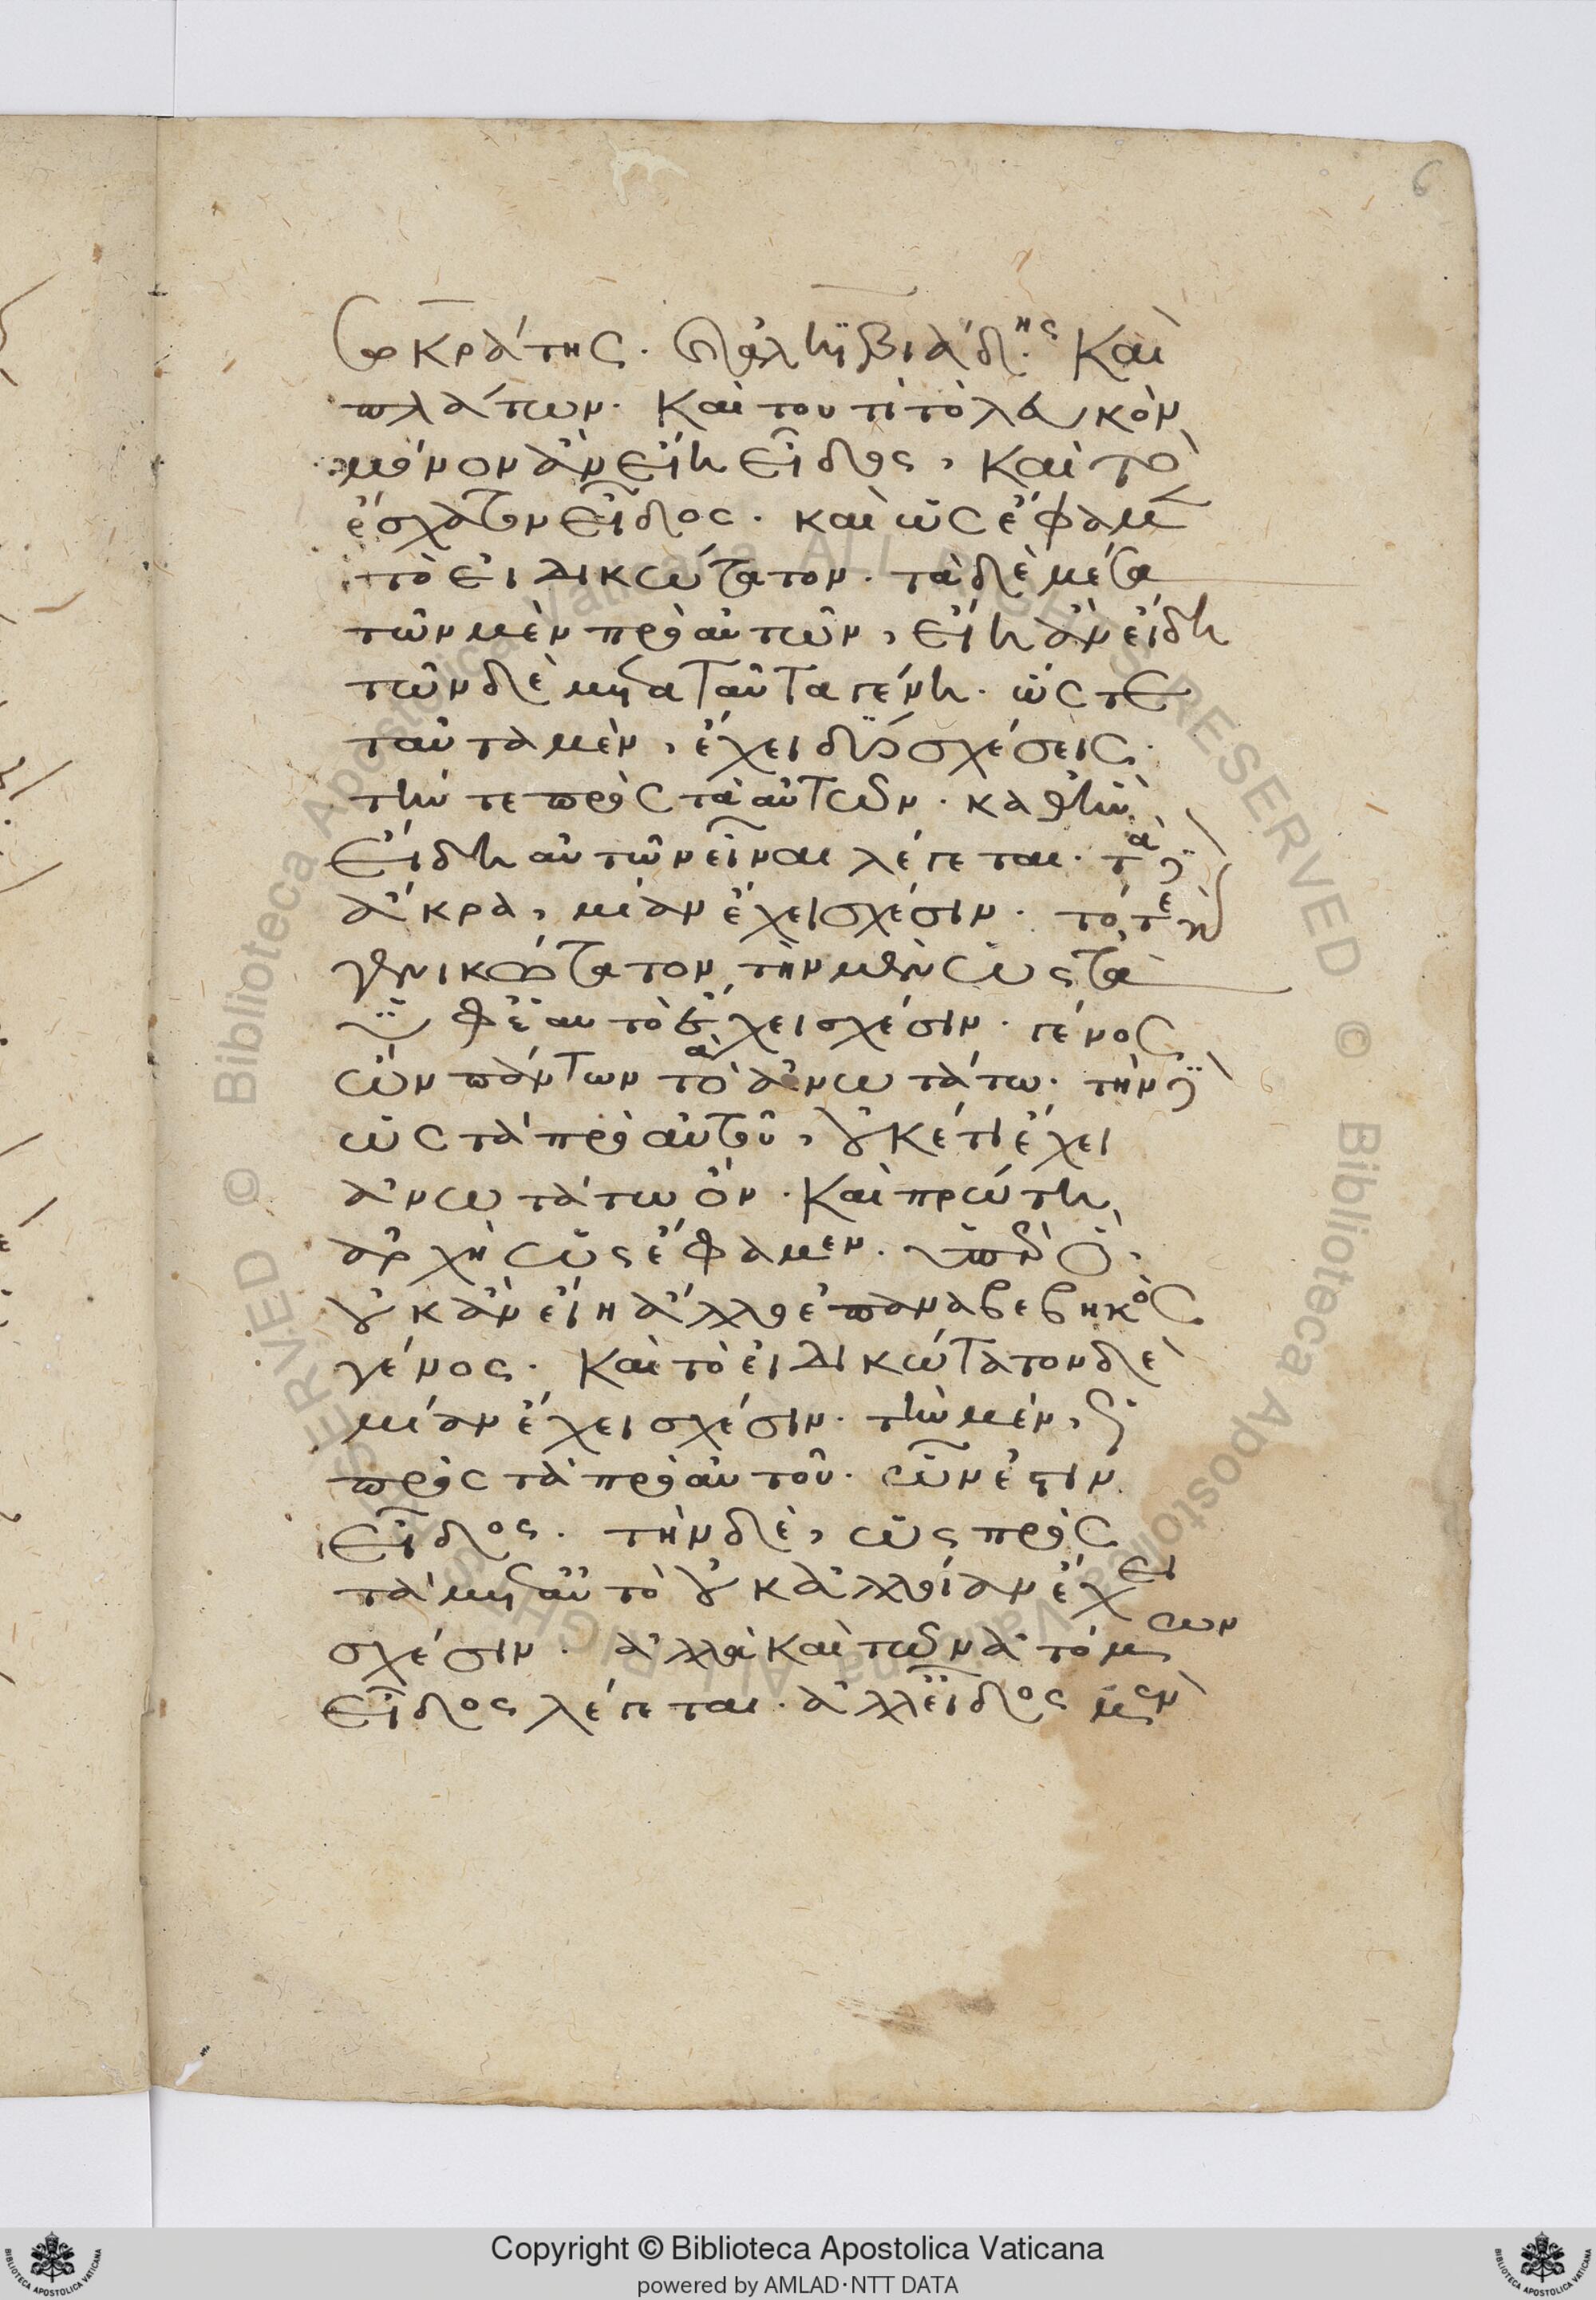 6
Σωκράτης. ἀλκϊβιάδης καὶ
πλάτων. καὶ τουτὶ τὸ λευκόν,
μόνον ἂν εἴη εἶδος, καὶ τὸ
ἔσχατον εἶδος. καὶ ὡς ἔφαμεν
τὸ εἰδικώτατον. τὰ δὲ μέσα
τῶν μὲν πρὸ αὐτῶν, εἴη ἂν εἴδη
τῶν δὲ μετὰ ταῦτα γένη. ὥςτε
ταῦτα μὲν, ἔχει δύο σχέσεις.
τήν τε πρὸς τὰ πρὸ αὐτῶν. καθ' ἣν
εἴδη αὐτῶν εἶναι λέγεται. τὰ δὲ
ἄκρα, μίαν ἔχει σχέσιν. τό τε γὰρ
γενικώτατον, τὴν μὲν ὡς τὰ
ὑφ' ἑαυτὸ ἔχει σχέσιν. γένος
ὢν πάντων τὸ ἀνωτάτω. τὴν δὲ
ὡς τὰ πρὸ αὐτοῦ, οὐκέτι ἔχει
ἀνωτάτω ὂν. καὶ πρώτη
ἀρχὴ ὡς ἔφαμεν. ὑπὲρ ὃ,
οὐκ ἂν εἴη ἄλλο ἐπαναβεβηκὸς
γένος. καὶ τὸ εἰδικώτατον δὲ
μίαν ἔχει σχέσιν. τὴν μὲν,
πρὸς τὰ πρὸ αὐτοῦ. ὧν ἐστιν
εἶδος. τὴν δὲ, ὡς πρὸς
τὰ μετ' αὐτὸ οὐκ ἀλλοίαν ἔχει
σχέσιν. ἀλλὰ καὶ τῶν ἀτόμων
εἶδος λέγεται. ἀλλ' εἶδος μὲν
Copyright © Biblioteca Apostolica Vaticana
powered by AMLAD·NTT DATA